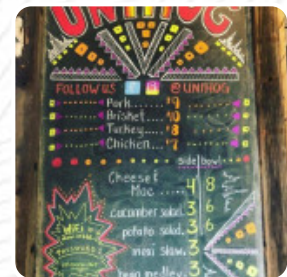 UNIHOG
FOLLOW US @UNIHOG
Pork...... $9
Brisket.... $10
Turkey.... $8
Chicken.... $7
Side bowl
Cheese &
Mac ..... 4 8
cucumber salad. 3 6
potato salad. 3 6
mesi slaw. 3
bean medley. 3
WiFi
PASSWORD: